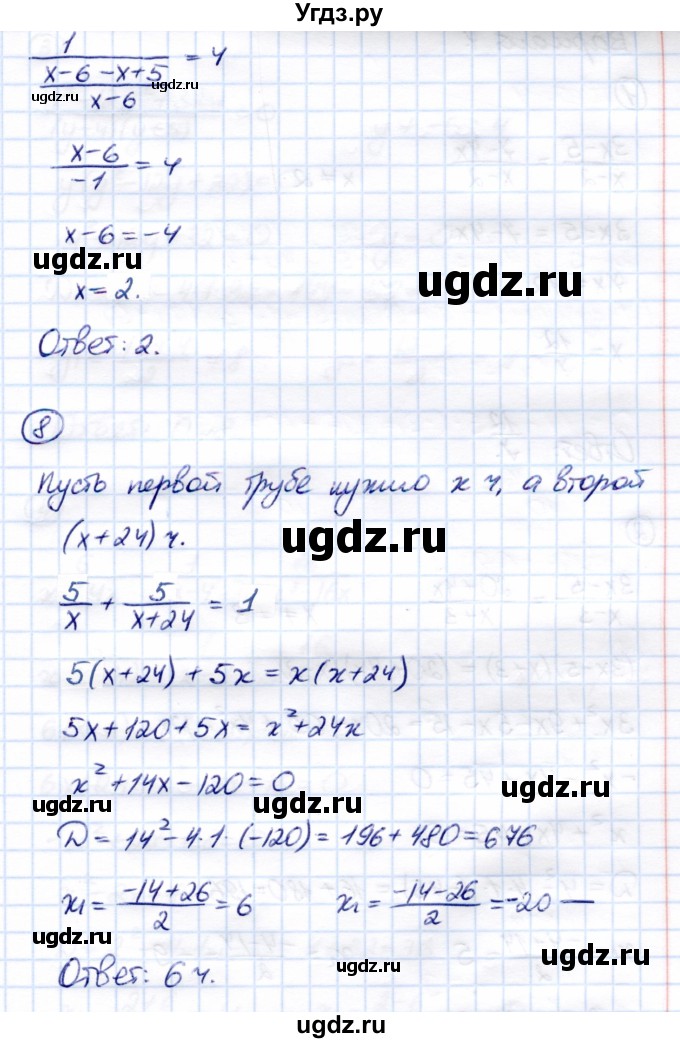 Угдз.ру
1/((x-6-x+5)/(x-6)) = 4
ugdz.ru ugdz.ru
(x-6)/(-1) = 4
x-6=-4
ugdz.ru
ugdz.ru
x=2.
Ответ: 2.
8
Пусть первой трубе нужно x ч, а второй
(x+24) ч.
ugdz.ru
5/x + 5/(x+24) = 1
5(x+24)+5x=x(x+24)
5x+120+5x=x²+24x
x²+14x-120=0
ugdz.ru
D=14²-4·1·(-120)=196+480=676
x₁=(-14+26)/2=6 x₁=(-14-26)/2=-20 —
ugdz.ru
ugdz.ru
Ответ: 6 ч.
ugdz.ru
ugdz.ru